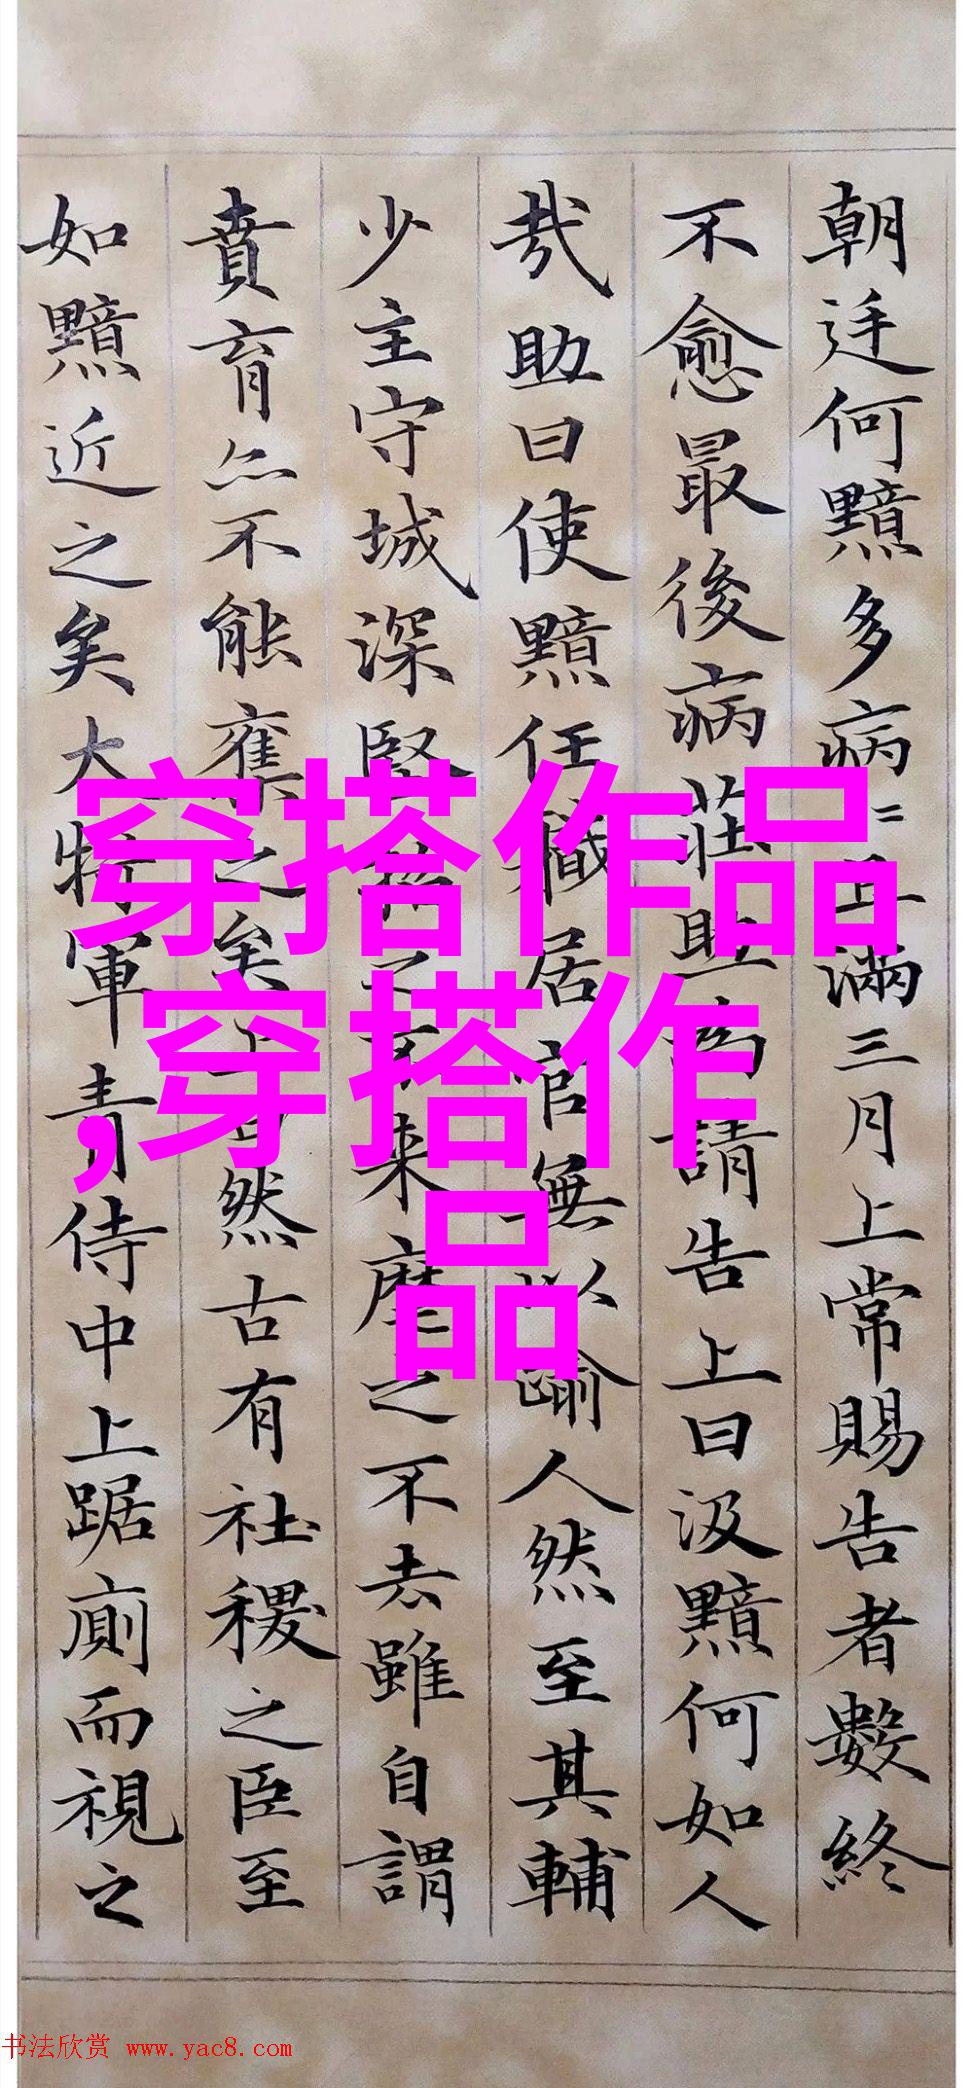 朝廷何黯多病〻且滿三月上常賜告者數終
不愈最後病莊助為請告上曰汲黯何如人
哉助曰使黯任職居官無以踰人然至其輔
少主守城深堅 來麾之不去雖自謂
賁育亦不能奪之矣上 然古有社稷之臣至
如黯近之矣大將軍青侍中上踞廁而視之
穿搭作品
,穿搭作
品
书法欣赏 www.yac8.com